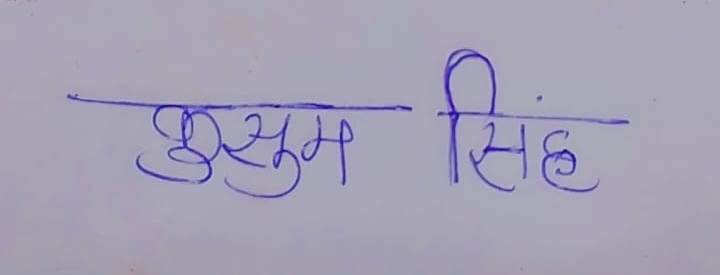 कुसुम सिंह